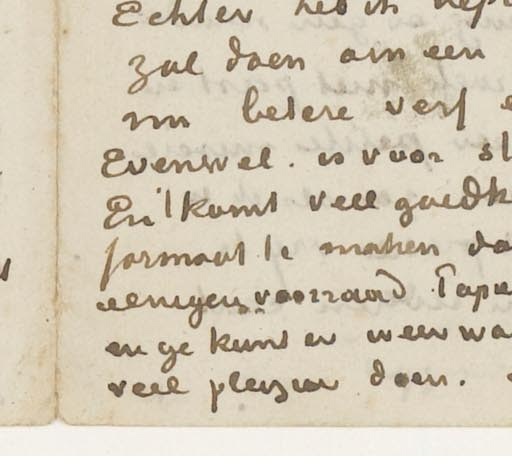 Echter heb ik
zal doen om een
nu betere verf
Evenwel is voor
En 't komt veel
formaat te maken
eenigen voorraad
en ge kunt er weer
veel pleizier doen.